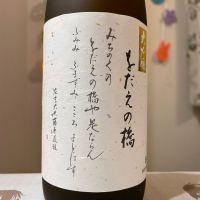 大吟醸
をだえの橋
みちのくの
をだえの橋や是ならん
ふみみ ふまずみ こころ まどはす
左京大夫藤原道雅